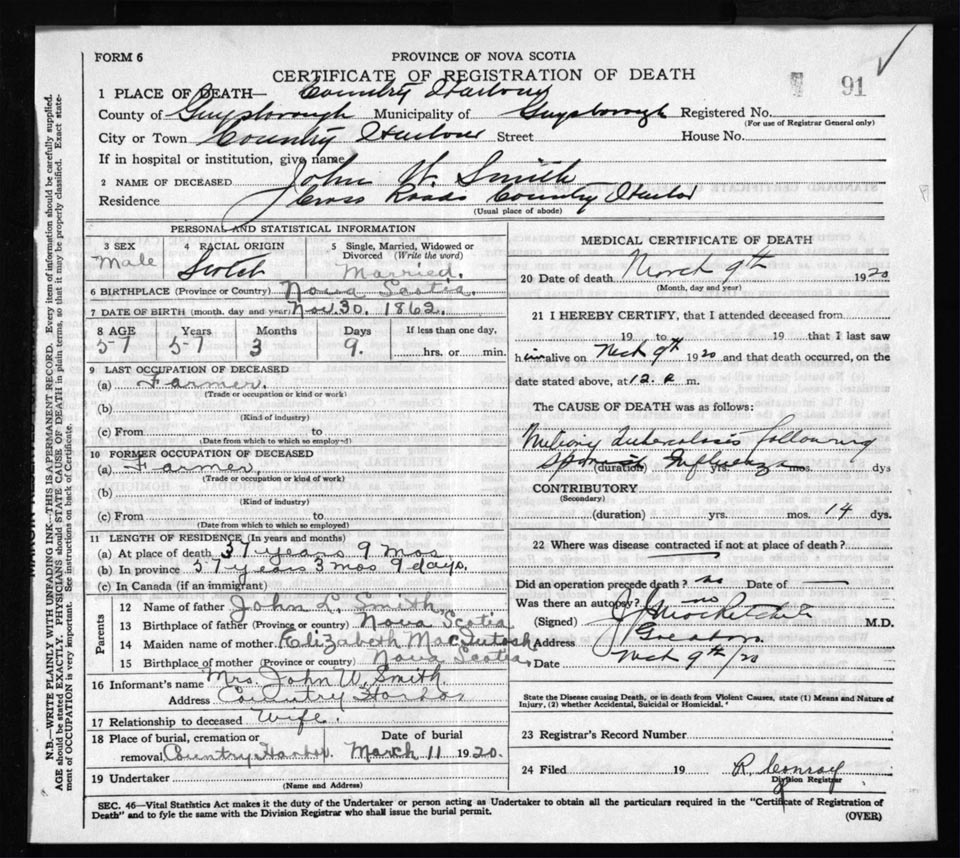 FORM 6
PROVINCE OF NOVA SCOTIA
CERTIFICATE OF REGISTRATION OF DEATH
91
1 PLACE OF DEATH— Country Harbour
County of Guysborough Municipality of Guysborough Registered No.
(For use of Registrar General only)
City or Town Country Harbour Street House No.
If in hospital or institution, give name
2 NAME OF DECEASED John W. Smith
Residence Cross Roads Country Harbor
(Usual place of abode)
PERSONAL AND STATISTICAL INFORMATION
3 SEX 4 RACIAL ORIGIN 5 Single, Married, Widowed or Divorced (Write the word)
Male Scotch Married.
6 BIRTHPLACE (Province or Country) Nova Scotia.
7 DATE OF BIRTH (month, day and year) Nov. 30. 1862.
8 AGE Years Months Days If less than one day,
57 57 3 9. hrs. or min.
9 LAST OCCUPATION OF DECEASED
(a) Farmer.
(Trade or occupation or kind or work)
(b)
(Kind of industry)
(c) From to
(Date from which to which so employed)
10 FORMER OCCUPATION OF DECEASED
(a) Farmer.
(Trade or occupation or kind of work)
(b)
(Kind of industry)
(c) From to
(Date from which to which so employed)
11 LENGTH OF RESIDENCE (In years and months)
(a) At place of death 37 years 9 mos
(b) In province 57 years 3 mos 9 days.
(c) In Canada (if an immigrant)
Parents
12 Name of father John L. Smith
13 Birthplace of father (Province or country) Nova Scotia
14 Maiden name of mother Elizabeth MacIntosh
15 Birthplace of mother (Province or country) Nova Scotia.
16 Informant's name Mrs. John W. Smith
Address Country Harbor
17 Relationship to deceased Wife.
18 Place of burial, cremation or Date of burial
removal Country Harbor. March 11 1920.
19 Undertaker
(Name and Address)
MEDICAL CERTIFICATE OF DEATH
20 Date of death March 9th 1920
(Month, day and year)
21 I HEREBY CERTIFY, that I attended deceased from
19 to 19 that I last saw
him alive on Mch 9th 1920 and that death occurred, on the
date stated above, at 12. a m.
The CAUSE OF DEATH was as follows:
Miliary Tuberculosis following
Spanish Influenza
(duration) yrs. mos. dys
CONTRIBUTORY
(Secondary)
(duration) yrs. mos. 14 dys.
22 Where was disease contracted if not at place of death?
Did an operation precede death? no Date of —
Was there an autopsy? no
(Signed) M.D.
Address
Date Mch 9th/20
State the Disease causing Death, or in death from Violent Causes, state (1) Means and Nature of
Injury, (2) whether Accidental, Suicidal or Homicidal.
23 Registrar's Record Number
24 Filed 19 R. Conroy
Division Registrar
SEC. 46—Vital Statistics Act makes it the duty of the Undertaker or person acting as Undertaker to obtain all the particulars required in the "Certificate of Registration of
Death" and to fyle the same with the Division Registrar who shall issue the burial permit.
(OVER)
N.B.—WRITE PLAINLY WITH UNFADING INK—THIS IS A PERMANENT RECORD. Every item of information should be carefully supplied.
AGE should be stated EXACTLY. PHYSICIANS should STATE CAUSE OF DEATH in plain terms, so that it may be properly classified. Exact state-
ment of OCCUPATION is very important. See instructions on back of Certificate.